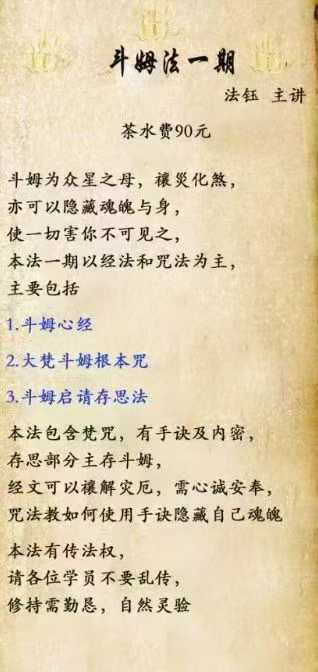 斗姆法一期
法钰 主讲
茶水费90元
斗姆为众星之母，禳災化煞，
亦可以隐藏魂魄与身，
使一切害你不可见之，
本法一期以经法和咒法为主，
主要包括
1.斗姆心经
2.大梵斗姆根本咒
3.斗姆启请存思法
本法包含梵咒，有手诀及内密，
存思部分主存斗姆，
经文可以禳解灾厄，需心诚安奉，
咒法教如何使用手诀隐藏自己魂魄
本法有传法权，
请各位学员不要乱传，
修持需勤恳，自然灵验